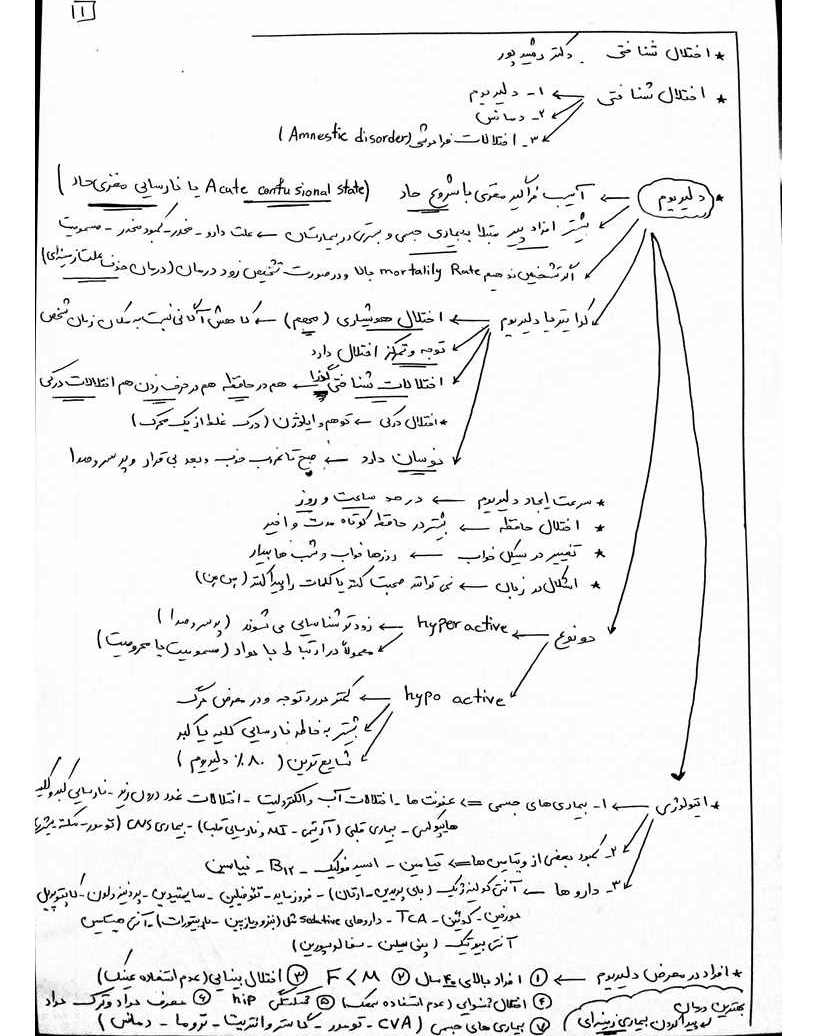 1
* اختلال شناختی . دکتر رشیدپور
* اختلال شناختی ← ۱- دلیریوم
۲- دمانس
۳- اختلالات فراموشی (Amnestic disorder)
* دلیریوم ← آسیب فراگیر مغزی با شروع حاد (Acute confusional state یا نارسایی مغزی حاد)
بیشتر افراد پیر مبتلا به بیماری جسمی و بستری در بیمارستان ← علت دارو - مخدر - کمبود مخدر - مسمومیت
اگر تشخیص ندهیم mortality Rate بالا و در صورت تشخیص زود درمان (درمان حذف علت زمینه‌ای)
کرایتریا دلیریوم ← اختلال هوشیاری (مهم) ← کاهش آگاهی نسبت به مکان زمان شخص
توجه و تمرکز اختلال دارد
اختلالات شناختی گذرا ← هم در حافظه هم در حرف زدن هم اختلالات درکی
* اختلال درکی ← توهم و ایلوژن (درک غلط از یک محرک)
نوسان دارد ← صبح تا غروب خوب و بعد بی قرار و پر سر و صدا
* سرعت ایجاد دلیریوم ← در حد ساعت و روز
* اختلال حافظه ← بیشتر در حافظه کوتاه مدت و اخیر
* تغییر در سیکل خواب ← روزها خواب و شب ها بیدار
* اشکال در زبان ← نمی تواند صحبت کند یا کلمات را پیدا کند
دو نوع ← hyperactive ← زودتر شناسایی می شوند (پر سر و صدا)
معمولاً در ارتباط با مواد (مسمومیت یا محرومیت)
hypo active ← کمتر مورد توجه و در معرض مرگ
بیشتر به خاطر نارسایی کلیه یا کبد
شایع ترین (۸۰٪ دلیریوم)
* اتیولوژی ← ۱- بیماری های جسمی ⇐ عفونت ها - اختلالات آب و الکترولیت - اختلالات غدد درون ریز - نارسایی کبد و کلیه
هایپوکسی - بیماری قلبی (آریتمی - MI و نارسایی قلب) - بیماری CNS (تومور - سکته -
۲- کمبود بعضی از ویتامین ها ⇐ تیامین - اسید فولیک - B۱۲ - نیاسین
۳- داروها ← آنتی کولینرژیک (بای پریدین - آرتان) - فروزماید - تئوفیلین - سایمتیدین - پردنیزولون - کاپتوپریل
مورفین - کدئین - TCA - داروهای sedative مثل (بنزودیازپین - باربیتورات) - آنتی هیستامین
آنتی بیوتیک (پنی سیلین - سفالوسپورین)
* افراد در معرض دلیریوم ← ① افراد بالای ۶۰ سال ② F < M ③ اختلال بینایی (عدم استفاده عینک)
④ اختلال شنوایی (عدم استفاده سمعک) ⑤ شکستگی hip ⑥ مصرف مواد و ترک مواد
⑦ بیماری های جسمی (CVA - تومور - گاستروانتریت - تروما - دمانس)
بهترین درمان
پیدا کردن بیماری زمینه ای